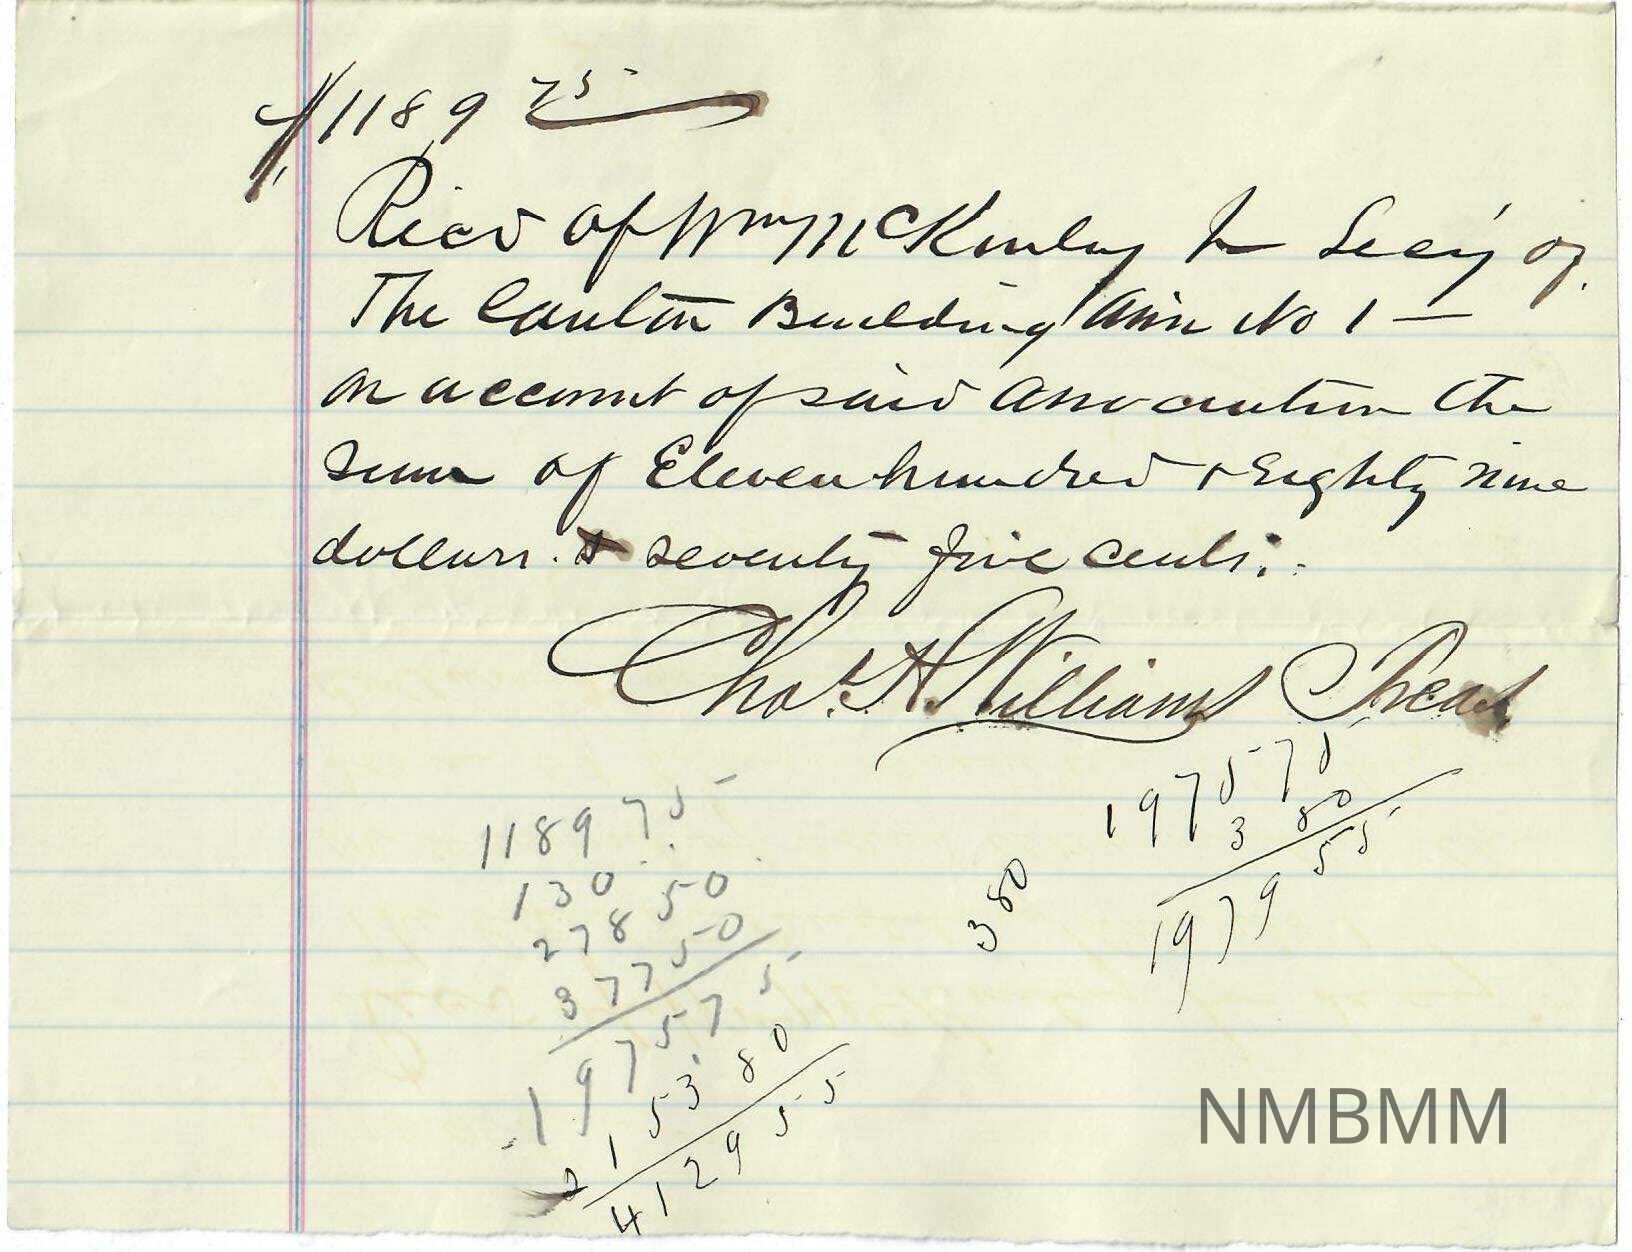 $1189 75
Recd of Wm McKinley Jr Secy of
The Canton Building Assn No 1 —
on account of said Association the
sum of Eleven hundred + Eighty nine
dollars. & seventy five cents.
Chas. A. Williams Treas.
1189 75
130
278 50
377 50
1975 75
2153 80
4129 55
1975 75
3 80
1979 55
3 80
NMBMM